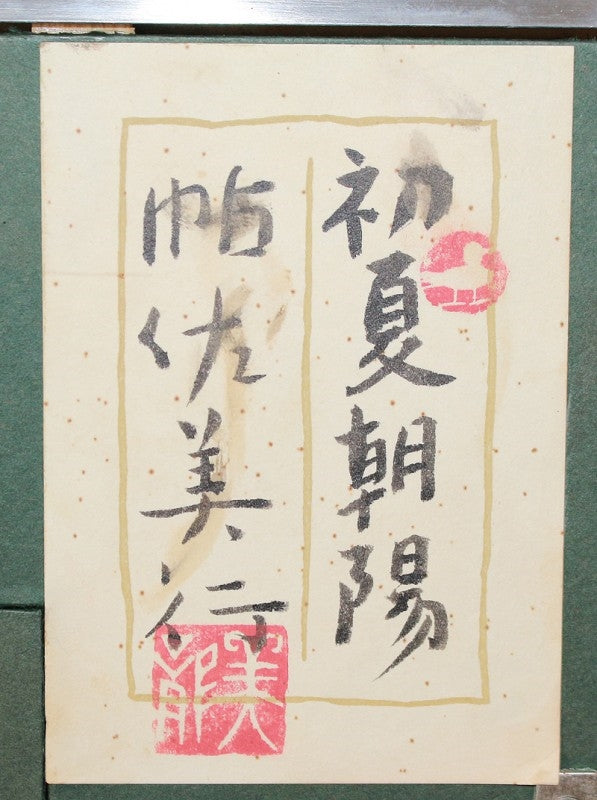 初夏朝陽
帖佐美行